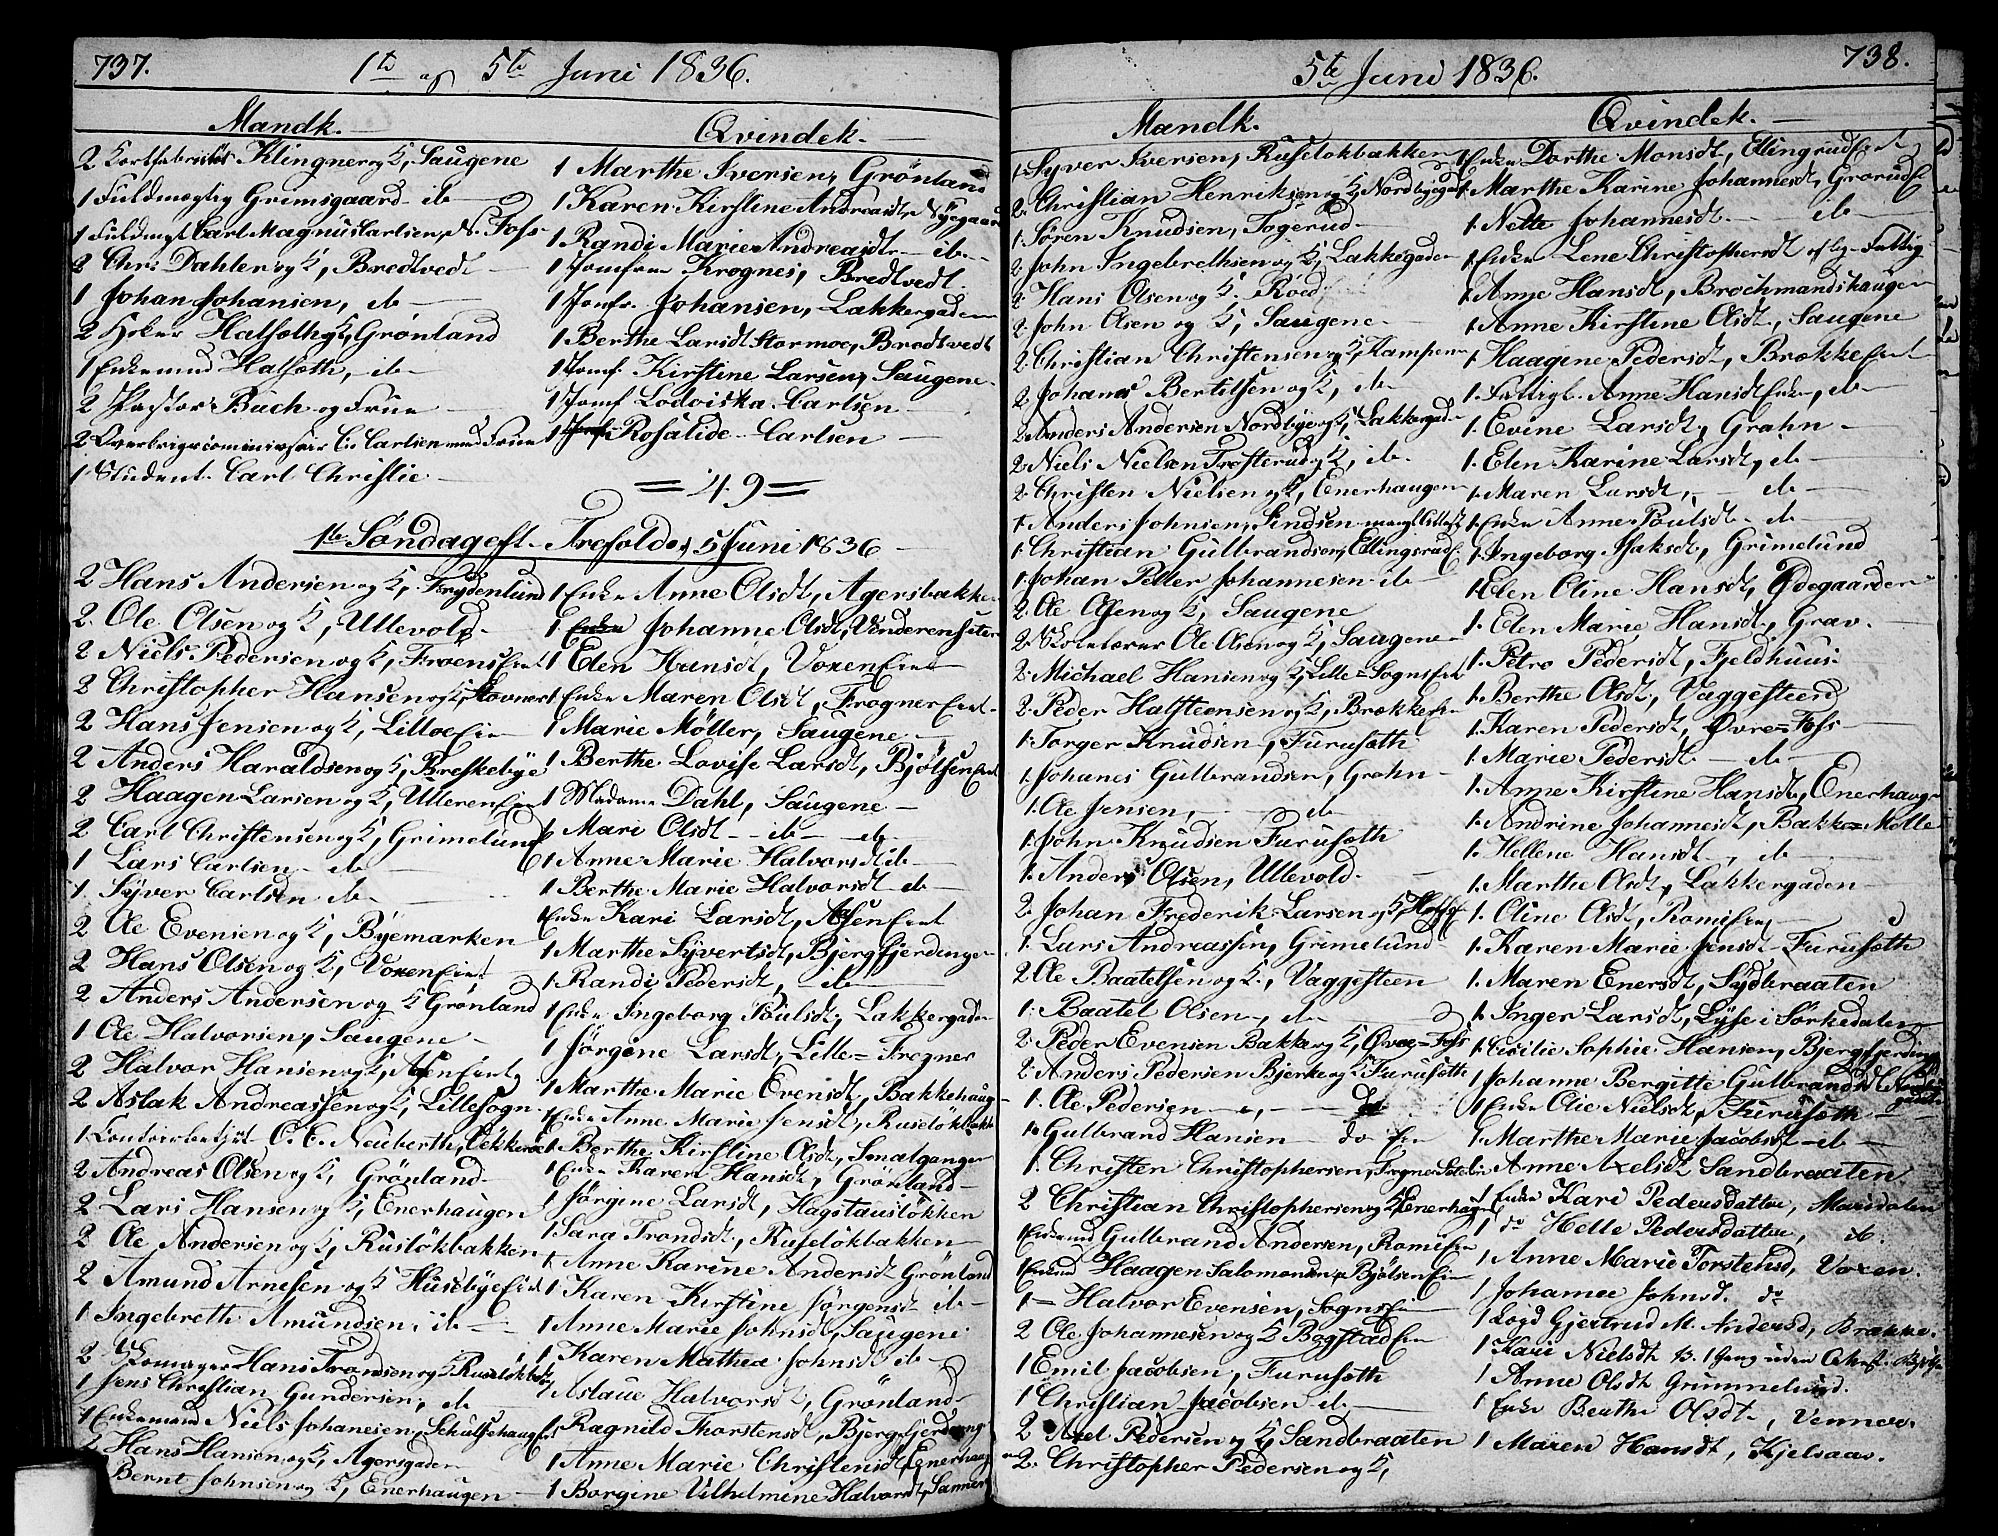 737.
1te og 5te Juni 1836.
Mandk.
2 Kortfabrikør Klingner og K, Saugene
1 Fuldmægtig Grimsgaard ib
1 Fuldmægt Carl Magnus Carlsen, N. Foss
2 Chr: Dahler og K, Bredtvedt
1 Johan Johansen, ib
2 Høker Halseth og K, Grønland
1 Enkemand Halseth, ib
2 Pastor Bach og Frue
2 C: Carlsen med Frue
1 Student Carl Christie
Qvindek.
1 Marthe Iversen, Grønland
1 Karen Kirstine Andreasdt, Nyegaard
1 Randi Marie Andreasdt ib
1 Jomfrue Krognes, Bredtvedt
1 Jomfr. Johansen, Lakkergaden
1 Berthe Larsdt Stormoe, Bredtvedt
1 Jomf. Kirstine Larsen, Saugene
1 Jomf Lodviska Carlsen
1 Rosalide Carlsen
=49=
1te Søndag eft. Trefold: d 5 Juni 1836
2 Hans Andersen og K, Frydenlund
2 Ole Olsen og K, Ullevold
2 Niels Pedersen og K, Frøens Eie
2 Christopher Hansen og K,
2 Hans Jensen og K, Lilloe Eie
2 Anders Haraldsen og K, Breskebye
2 Haagen Larsen og K, Ulleren Eiet
2 Carl Christensen og K, Grimelund
1 Lars Carlsen ib
1 Syver Carlsen ib
2 Ole Evensen og K, Byemarken
2 Hans Olsen og K, Voxen Eiet
2 Anders Andersen og K Grønland
1 Ole Halvorsen, Saugene
2 Halvor Hansen og K, Aasen Eiet
2 Aslak Andreassen og K, Lillesogn
1 Contoirbetjent C. C. Neuberth,
2 Andreas Olsen og K, Grønland
2 Lars Hansen og K, Enerhaugen
2 Ole Andersen og K, Rusløkbakken
2 Amund Arnesen og K Husebye Eiet
1 Ingebreth Amundsen, ib
2 Skomager Hans Trondsen og K Rusløkbak
1 Jens Christian Gundersen, ib
1 Enkemand Niels Johanesen, Schultzehaugen
2 Hans Hansen og K, Agersgaden
Bernt Johnsen og K, Enerhaugen
1 Enke Anne Olsdt, Agersbakken
1 Johanne Olsdt, Vinderensæter
1 Elen Hansdt, Voxen Eiet
1 Enke Maren Olsdt, Frogner Eiet
1 Marie Møller, Saugene
1 Berthe Lovise Larsdt, Bjølsen Eiet
1 Madame Dahl, Saugene
1 Mari Olsdt ib ib
1 Anne Marie Halvorsdt ib
1 Berthe Marie Halvorsdt ib
1 Enke Kari Larsdt, Aasen Eiet
1 Marthe Syvertsdt, Bjergfjerdingen
1 Randi Pedersdt, ib
1 Enke Ingeborg Poulsdt, Lakkergaden
1 Jørgine Larsdt, Lille=Frogner
1 Marthe Marie Evensdt, Bakkehaug
1 Enke Anne Marie Jensdt, Rusløkbakk
1 Berthe Kirstine Olsdt, Smalgangen
1 Enke Karen Hansdt, Grønland
1 Jørgine Larsdt, Hagstausløkken
1 Sara Trondsdt, Rusløkbakken
1 Anne Karine Andersdt Grønland
1 Karen Kirstine Jørgensdt ib
1 Anne Marie Johnsdt, Saugene
1 Karen Mathea Johnsdt ib
1 Aslaue Halvorsdt, Grønland
1 Ragnild Thorstensdt, Bjergfjerding
1 Anne Marie Christensdt, Enerhaug
1 Borgine Vilhelmine Halvorsdt, Sanner
738.
5te Juni 1836.
Mandk.
1. Syver Iversen, Rusløkbakken
2. Christian Henriksen og K, Nordbygad
1. Søren Knudsen, Togerud
2. John Ingebrethsen og K, Lakkegaden
2. Hans Olsen og K. Røed
2. John Olsen og K, Saugene
2. Christian Christensen og K, Kampen
2. Johanes Bertelsen og K, ib
2. Anders Andersen Nordbye og K, Lakkergad
2. Niels Nielsen Trosterud og K, ib
2. Christen Nielsen og K, Enerhaugen
1. Anders Johnsen, Sindsen
1. Christian Gulbrandsen, Ellingsrud
1. Johan Petter Johannesen ib
2. Ole Olsen og K, Saugene
2. Ole Olsen og K, Saugene
2. Michael Hansen og K, Lille=Sogns Eie
2. Peder Halsteensen og K, Brække Eie
1. Torger Knudsen, Furuseth
1. Johanes Gulbrandsen, Grahn
1. Ole Jensen, ib
1. John Knudsen Furuseth
1. Anders Olsen, Ullevold
2. Johan Frederik Larsen og K,
1. Lars Andreassen, Grimelund
2. Ole Baatelsen og K., Vaggesteen
1. Baatel Olsen, ib
2. Peder Evensen Bakke og K, Øvre=Foss
2. Anders Pedersen Bjerke og K Furuseth
1. Ole Pedersen do
1. Gulbrand Hansen do Eie
1. Christen Christophersen, Frogner
2 Christian Christophersen og K Enerhaugen
1 Enkemd Gulbrand Andersen, Romsæs Eie
1 Enkemd Haagen Salomonsen, Bjølsen Eie
1 = Halvor Evensen, Sogns Eie
2 Ole Johannesen og K Bogstad Eie
1 Emil Jacobsen, Furuseth
1 Christian Jacobsen ib
2 Axel Pedersen og K, Sandbraaten
2. Christopher Pedersen og K,
Qvindek.
1. Enke Dorthe Monsdt, Ellingsrud Eiet
1. Marthe Karine Johannesdt, Grorud
1. Nette Johannesdt ib
1. Enke Lene Christophersdt Fattig
1. Anne Hansdt, Brochmandshaugen
1. Anne Kirstine Olsdt, Saugene
1. Haagine Pedersdt, Brække Eiet
1. Fattigl. Anne Hansdt Enke, ib
1. Evine Larsdt, Grahn
1. Elen Karine Larsdt, ib
1. Maren Larsdt, ib
1. Enke Anne Poulsdt ib
1. Ingeborg Isaksdt, Grimelund
1. Elen Oline Hansdt, Ødegaarden
1. Elen Marie Hansdt, Grav.
1. Petro Pedersdt, Fjeldhuus
1. Berthe Olsdt, Vaggesteen
1. Karen Pedersdt, Øvre=Foss
1. Marie Pedersdt ib
1. Anne Kirstine Hansdt, Enerhaugen
1. Andrine Johannesdt, Bakke=Mølle
1. Hellene Hansdt, ib
1. Marthe Olsdt, Lakkergaden
1. Oline Olsdt, Romsæs
1. Karen Marie Jensdt Furuseth
1. Maren Enersdt, Sydbraaten
1. Inger Larsdt, Lyse i Sørkedalen
1. Cicilie Sophie Hansen, Bjergfjerding
1 Johanne Bergitte Gulbrandsdt,
1 Enke Olie Nielsdt, Furuseth
1. Marthe Marie Jacobsdt ib
1. Anne Axelsdt Sandbraaten
1 Enke Kari Pedersdatter, Maridalen
1 do Helle Pedersdatter, ib.
1 Anne Marie Torstensd, Voxen.
1 Johanne Johnsd. do
1 Logd Gjertrud M. Andersd, Brække.
1 Kari Nielsdt
1 Anne Olsdt Grimmelund.
1 Enke Berthe Olsdt,
1 Maren Hansdt, Kjelsaas.